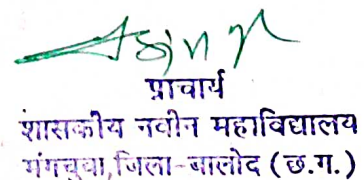 प्राचार्य
शासकीय नवीन महाविद्यालय
मंगचुवा,जिला-बालोद (छ.ग.)